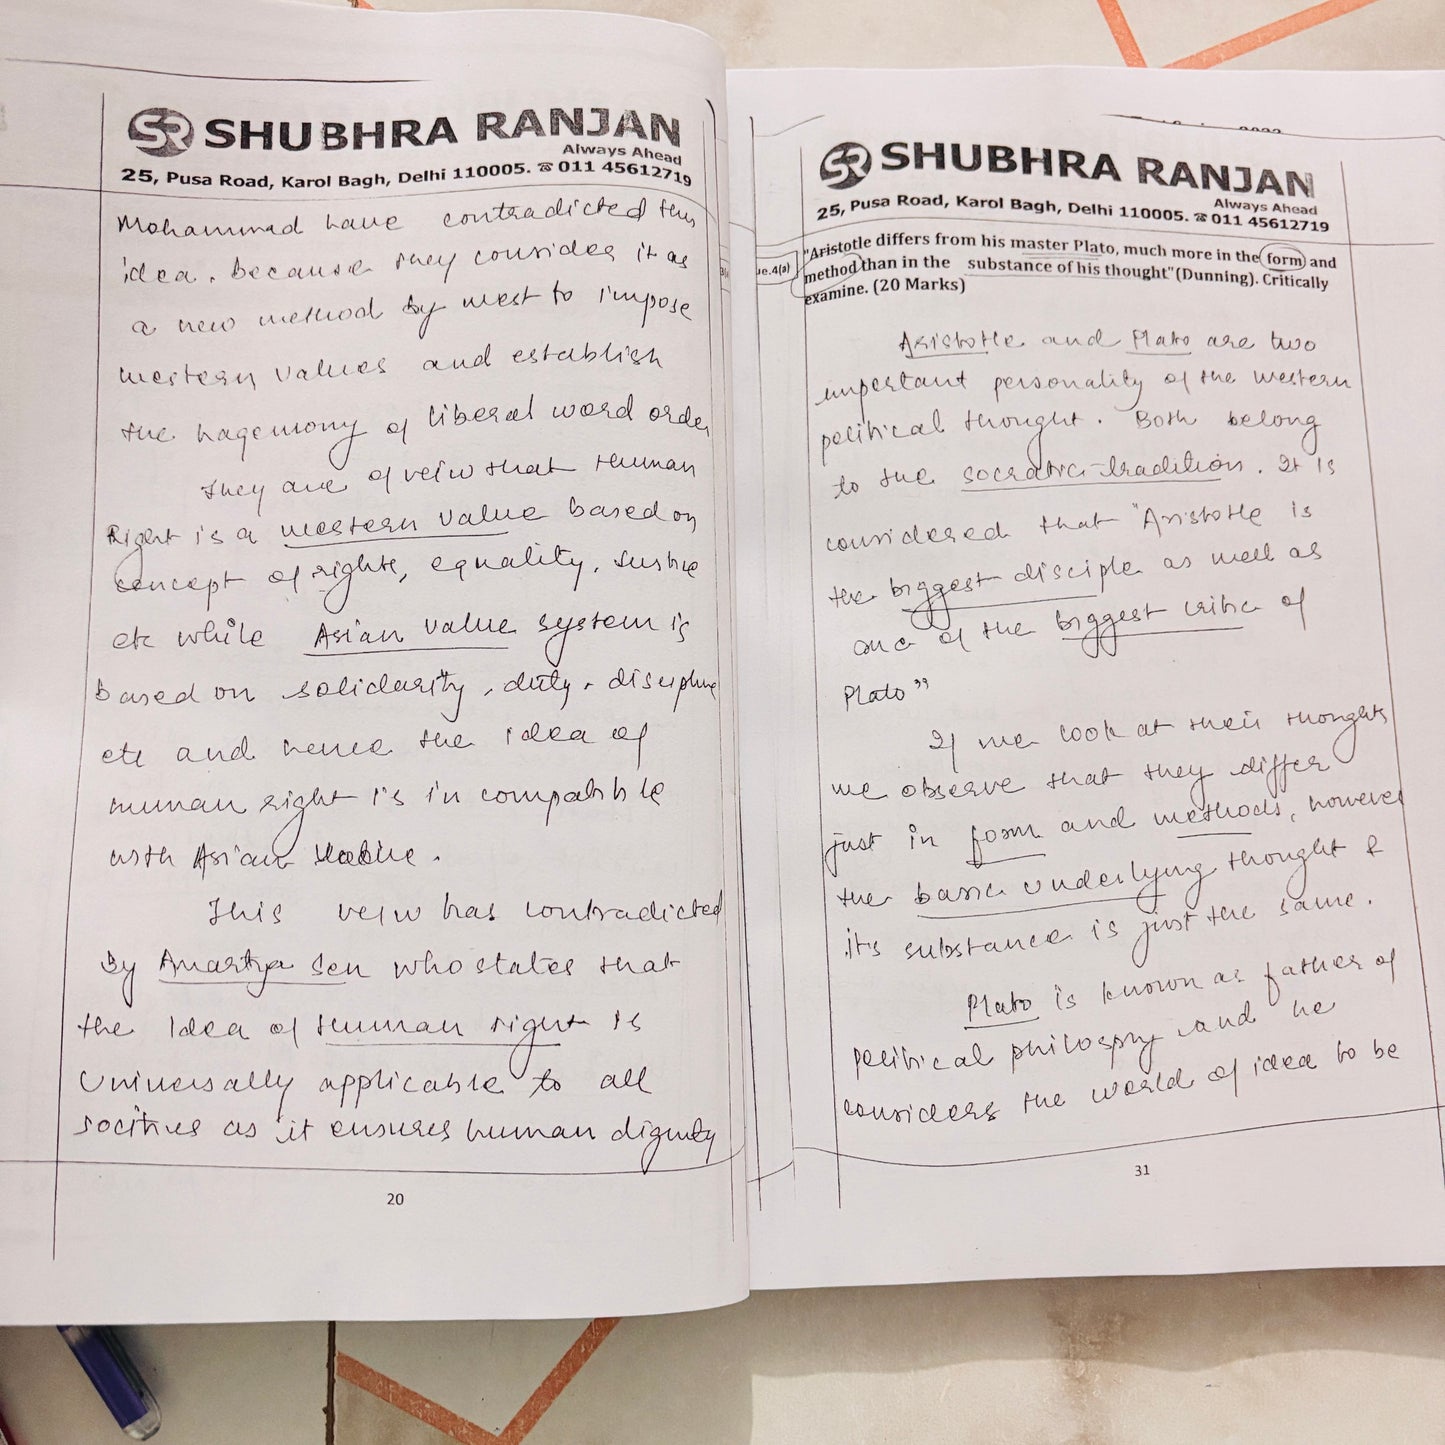 SR SHUBHRA RANJAN
Always Ahead
25, Pusa Road, Karol Bagh, Delhi 110005. ☎ 011 45612719
Mohammad have contradicted this
idea. Because they consider it as
a new method by west to impose
western values and establish
the hagemony of liberal word order
They are of veiw that Human
Right is a western value based on
concept of rights, equality, Justice
etc while Asian value system is
based on solidarity, duty, discipline
etc and hence the idea of
human right is in compatible
with Asian Value.
This veiw has contradicted
by Amartya Sen who states that
the idea of Human right is
Universally applicable to all
socities as it ensures human dignity
20
SR SHUBHRA RANJAN
Always Ahead
25, Pusa Road, Karol Bagh, Delhi 110005. ☎ 011 45612719
ue.4(a)
"Aristotle differs from his master Plato, much more in the form and
method than in the substance of his thought"(Dunning). Critically
examine. (20 Marks)
Aristotle and Plato are two
important personality of the western
political thought. Both belong
to the socratic-tradition. It is
considered that "Aristotle is
the biggest disciple as well as
one of the biggest critic of
Plato"
If we look at their thoughts
we observe that they differ
just in form and methods, however
the basic underlying thought &
its substance is just the same.
Plato is known as father of
political philosphy and he
considers the world of idea to be
31